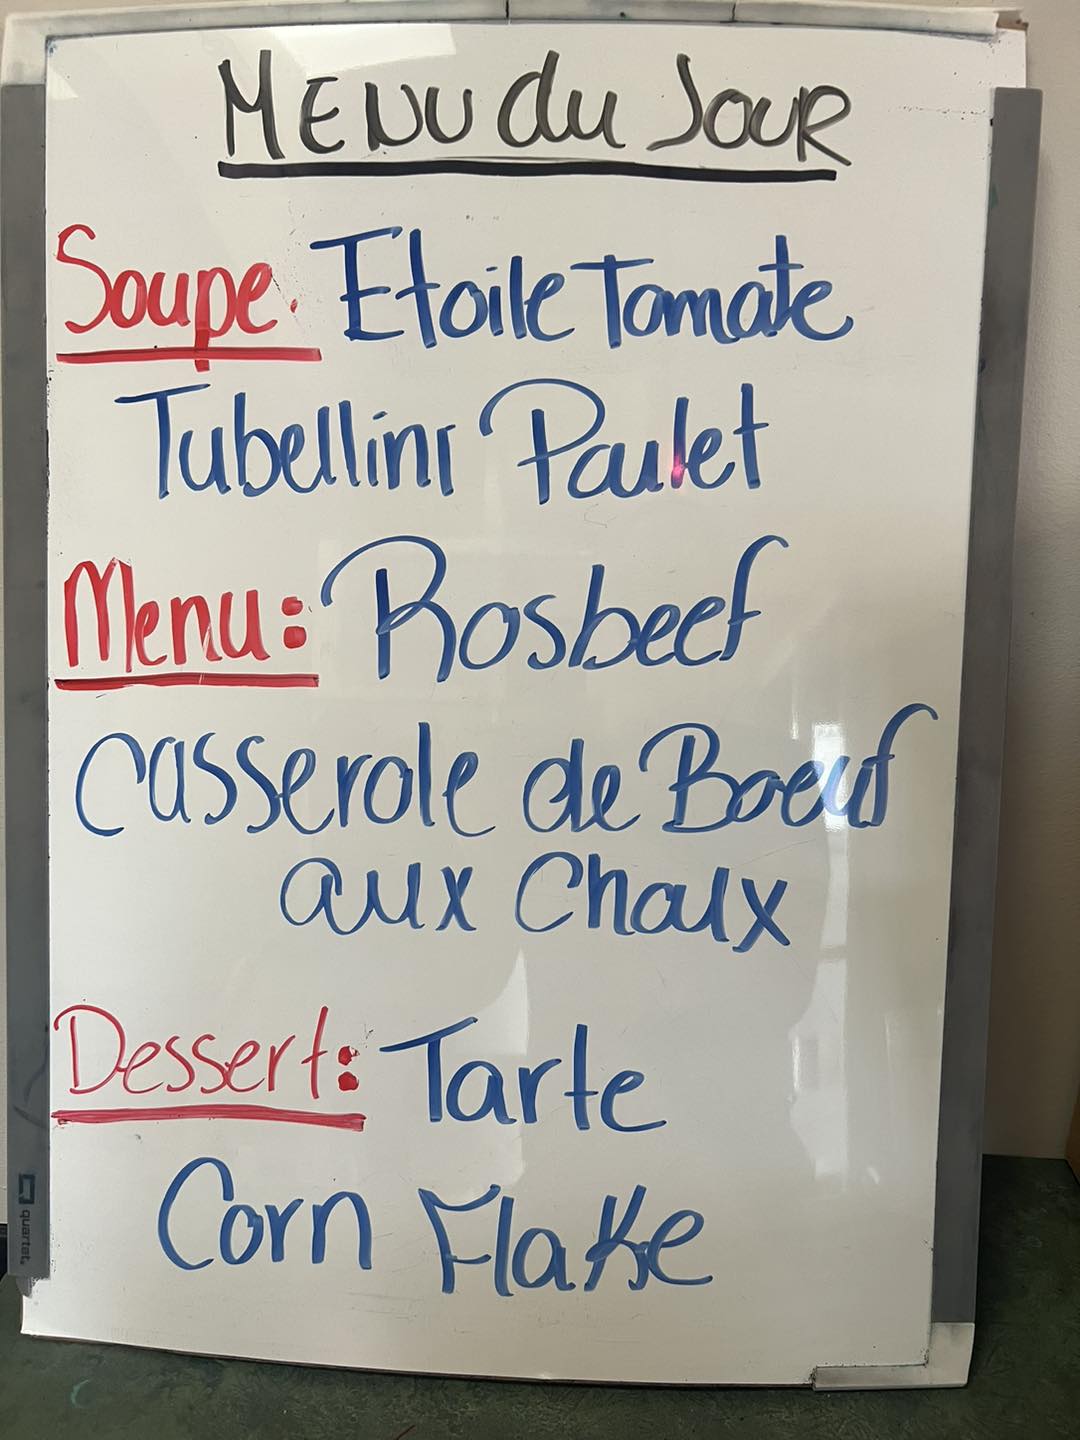 MENU du JOUR
Soupe. Etoile Tomate
Tubellini Poulet
Menu: Rosbeef
Casserole de Boeuf
aux Choux
Dessert: Tarte
Corn Flake
quartet